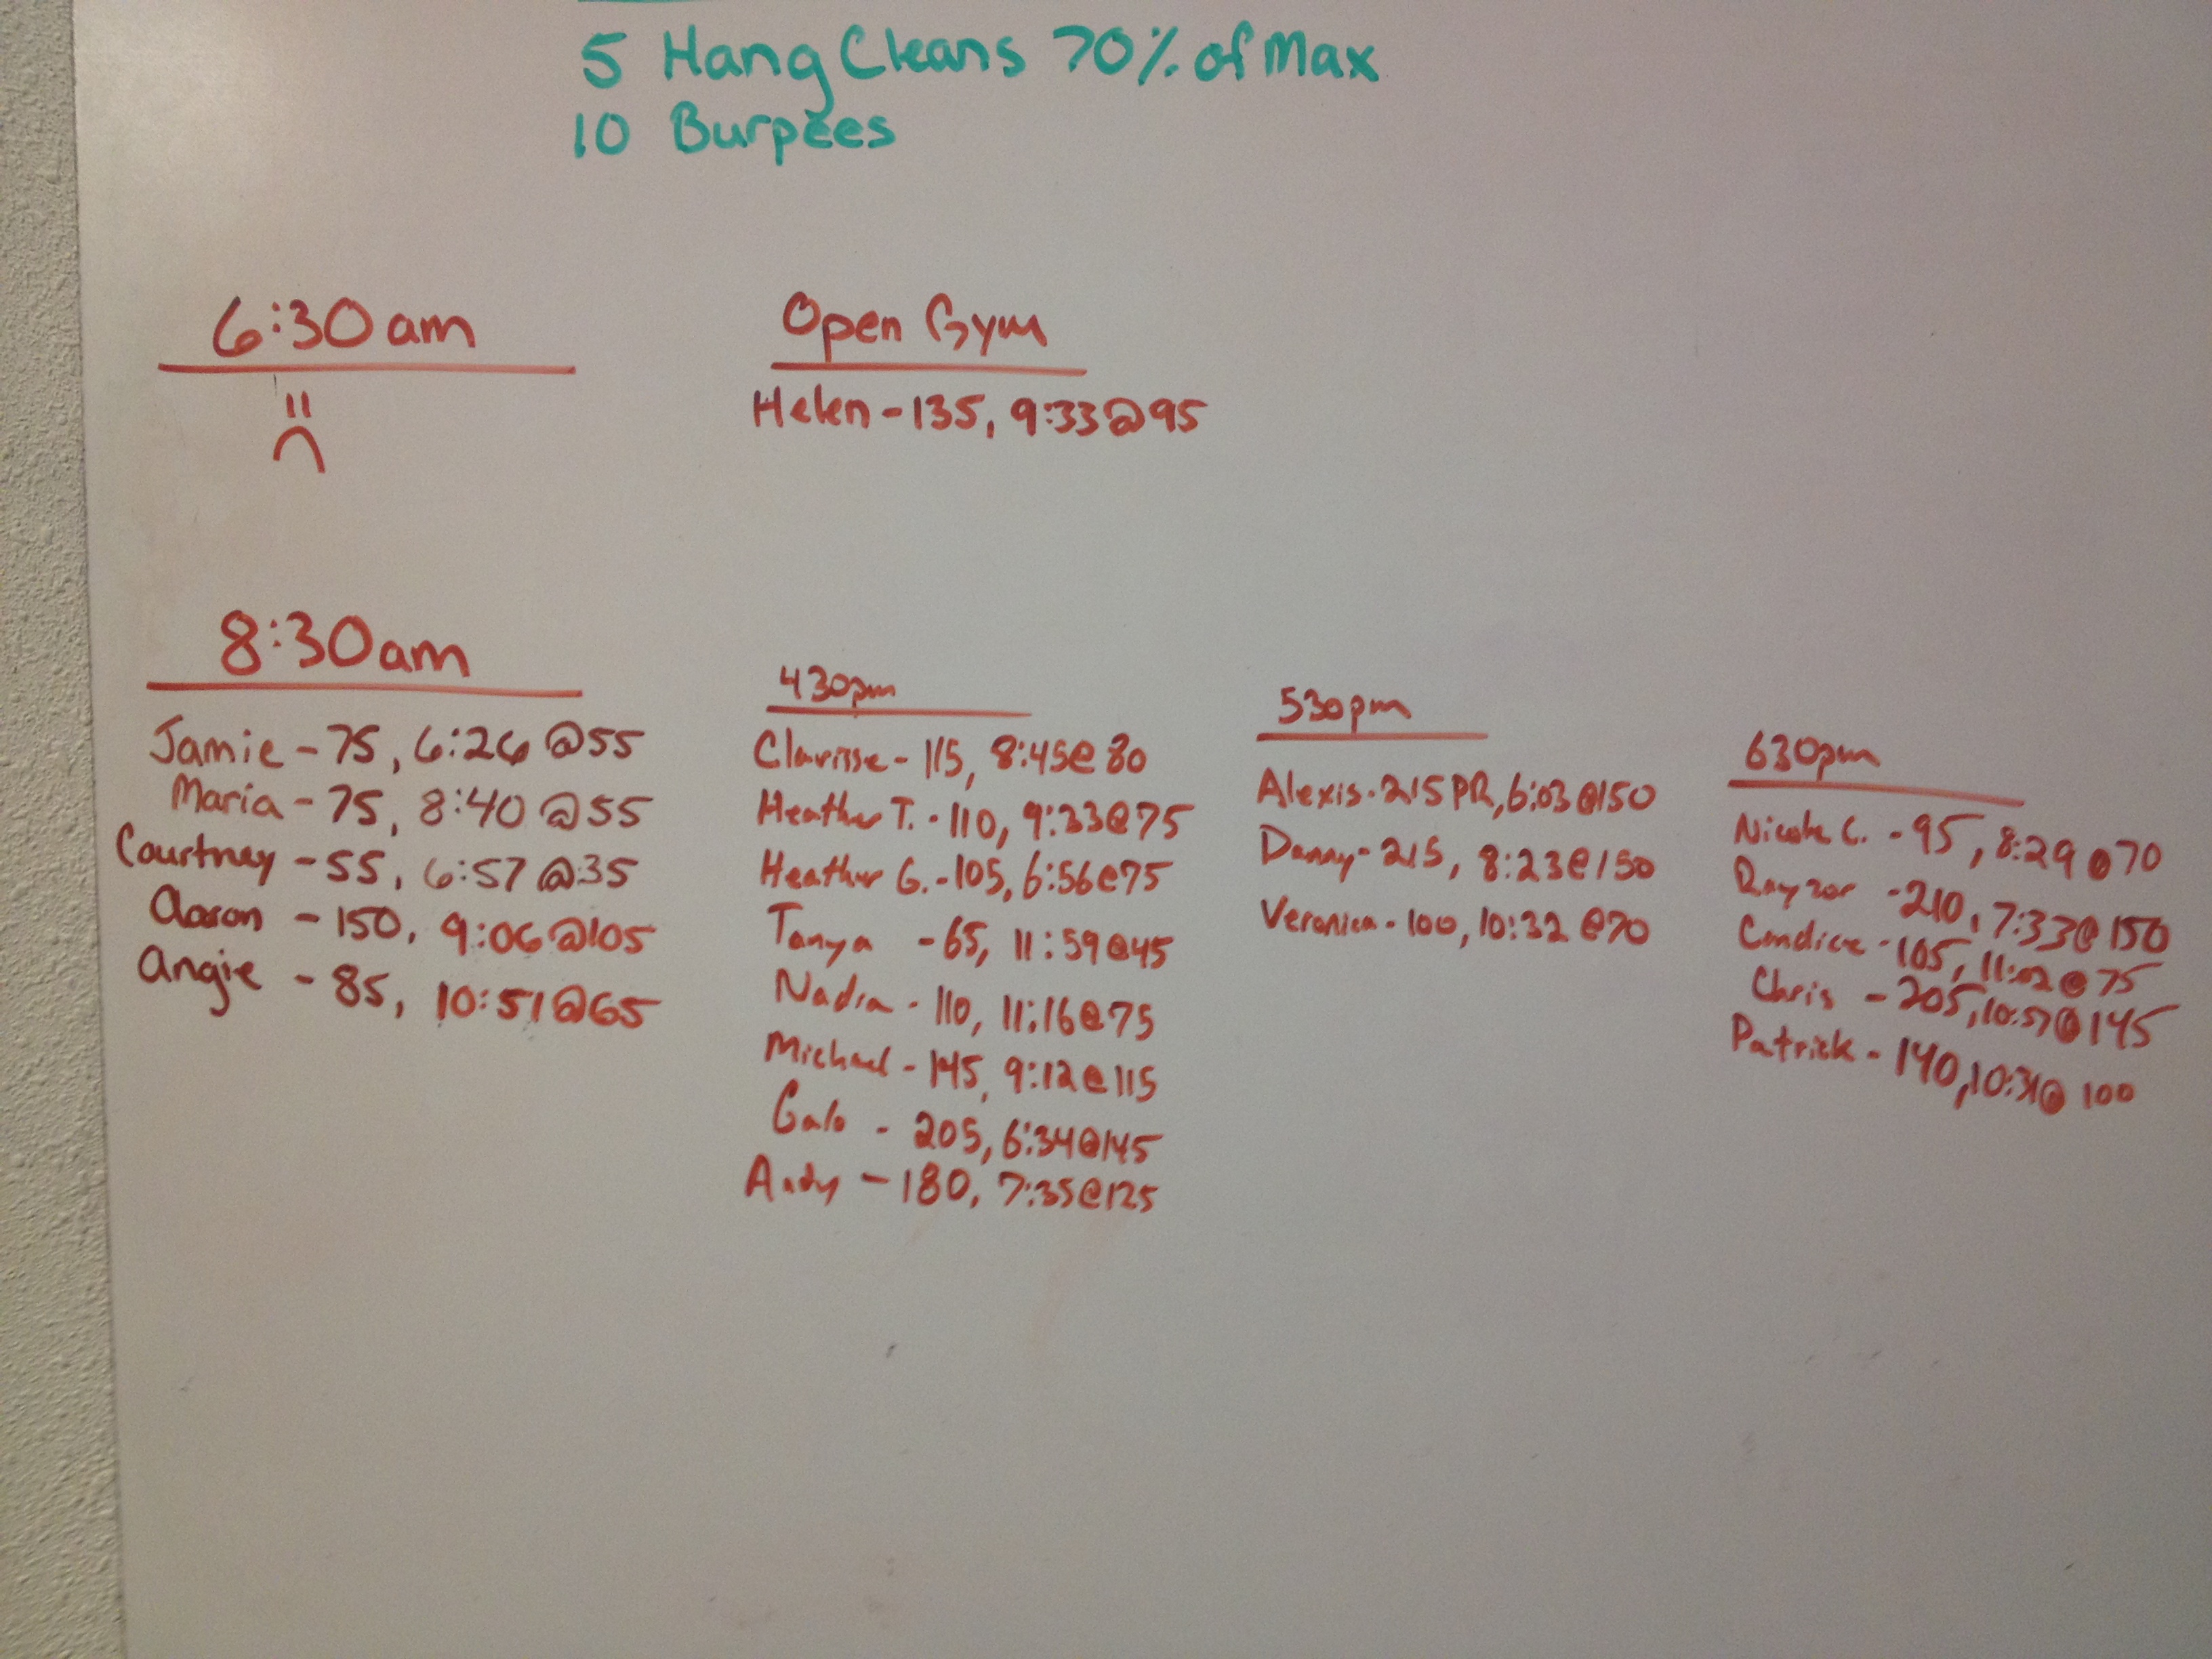 5 Hang Cleans 70% of Max
10 Burpees
6:30am
Open Gym
Helen - 135, 9:33@95
8:30am
Jamie - 75, 6:26 @55
Maria - 75, 8:40 @55
Courtney - 55, 6:57 @35
Aaron - 150, 9:06@105
Angie - 85, 10:51@65
430pm
Clarisse - 115, 8:45@80
Heather T. - 110, 9:33@75
Heather G. - 105, 6:56@75
Tanya - 65, 11:59@45
Nadia - 110, 11:16@75
Michael - 145, 9:12@115
Galo - 205, 6:34@145
Andy - 180, 7:35@125
530pm
Alexis - 215 PR, 6:03@150
Danny - 215, 8:23@150
Veronica - 100, 10:32@70
630pm
Nicole C. - 95, 8:29@70
Rayzor - 210, 7:33@150
Candice - 105, 11:02@75
Chris - 205, 10:57@145
Patrick - 140, 10:31@100